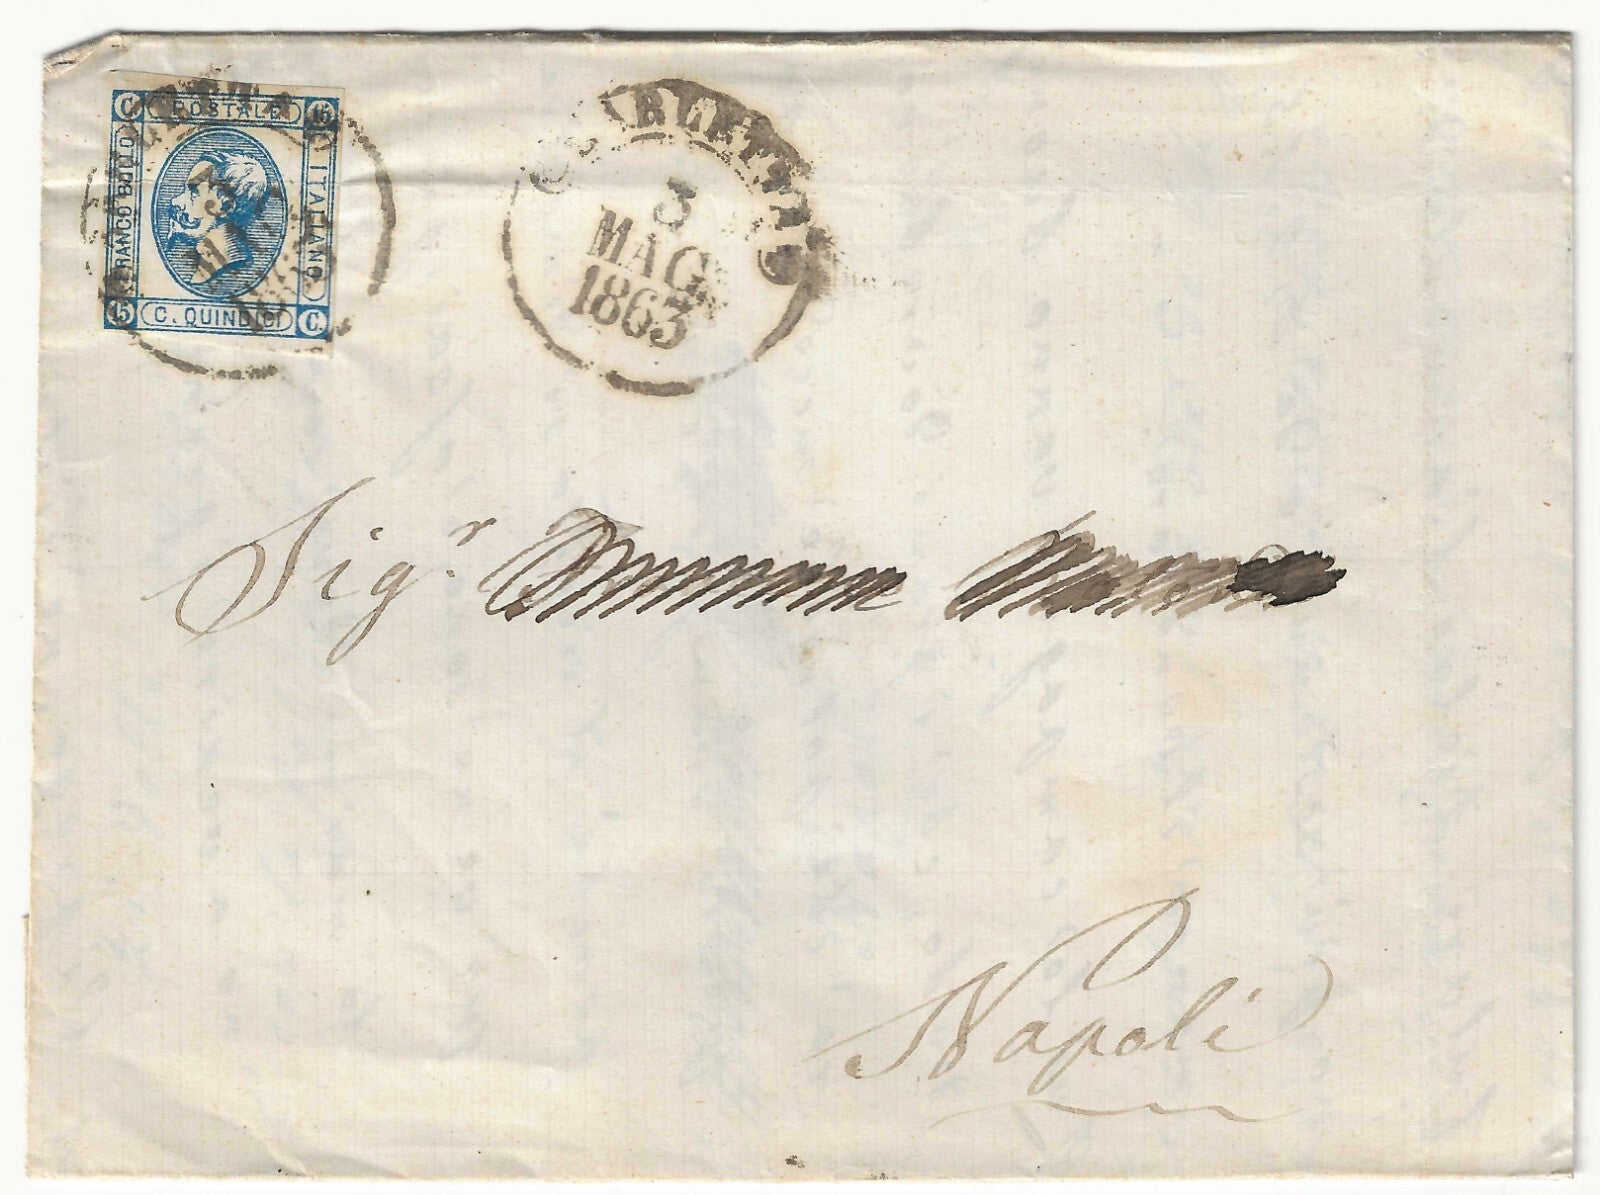 C POSTALE 15
FRANCO BOLLO
ITALIANO
15 C. QUINDICI C.
3
BARLETTA
3
MAG.
1863
Sig.r
Napoli